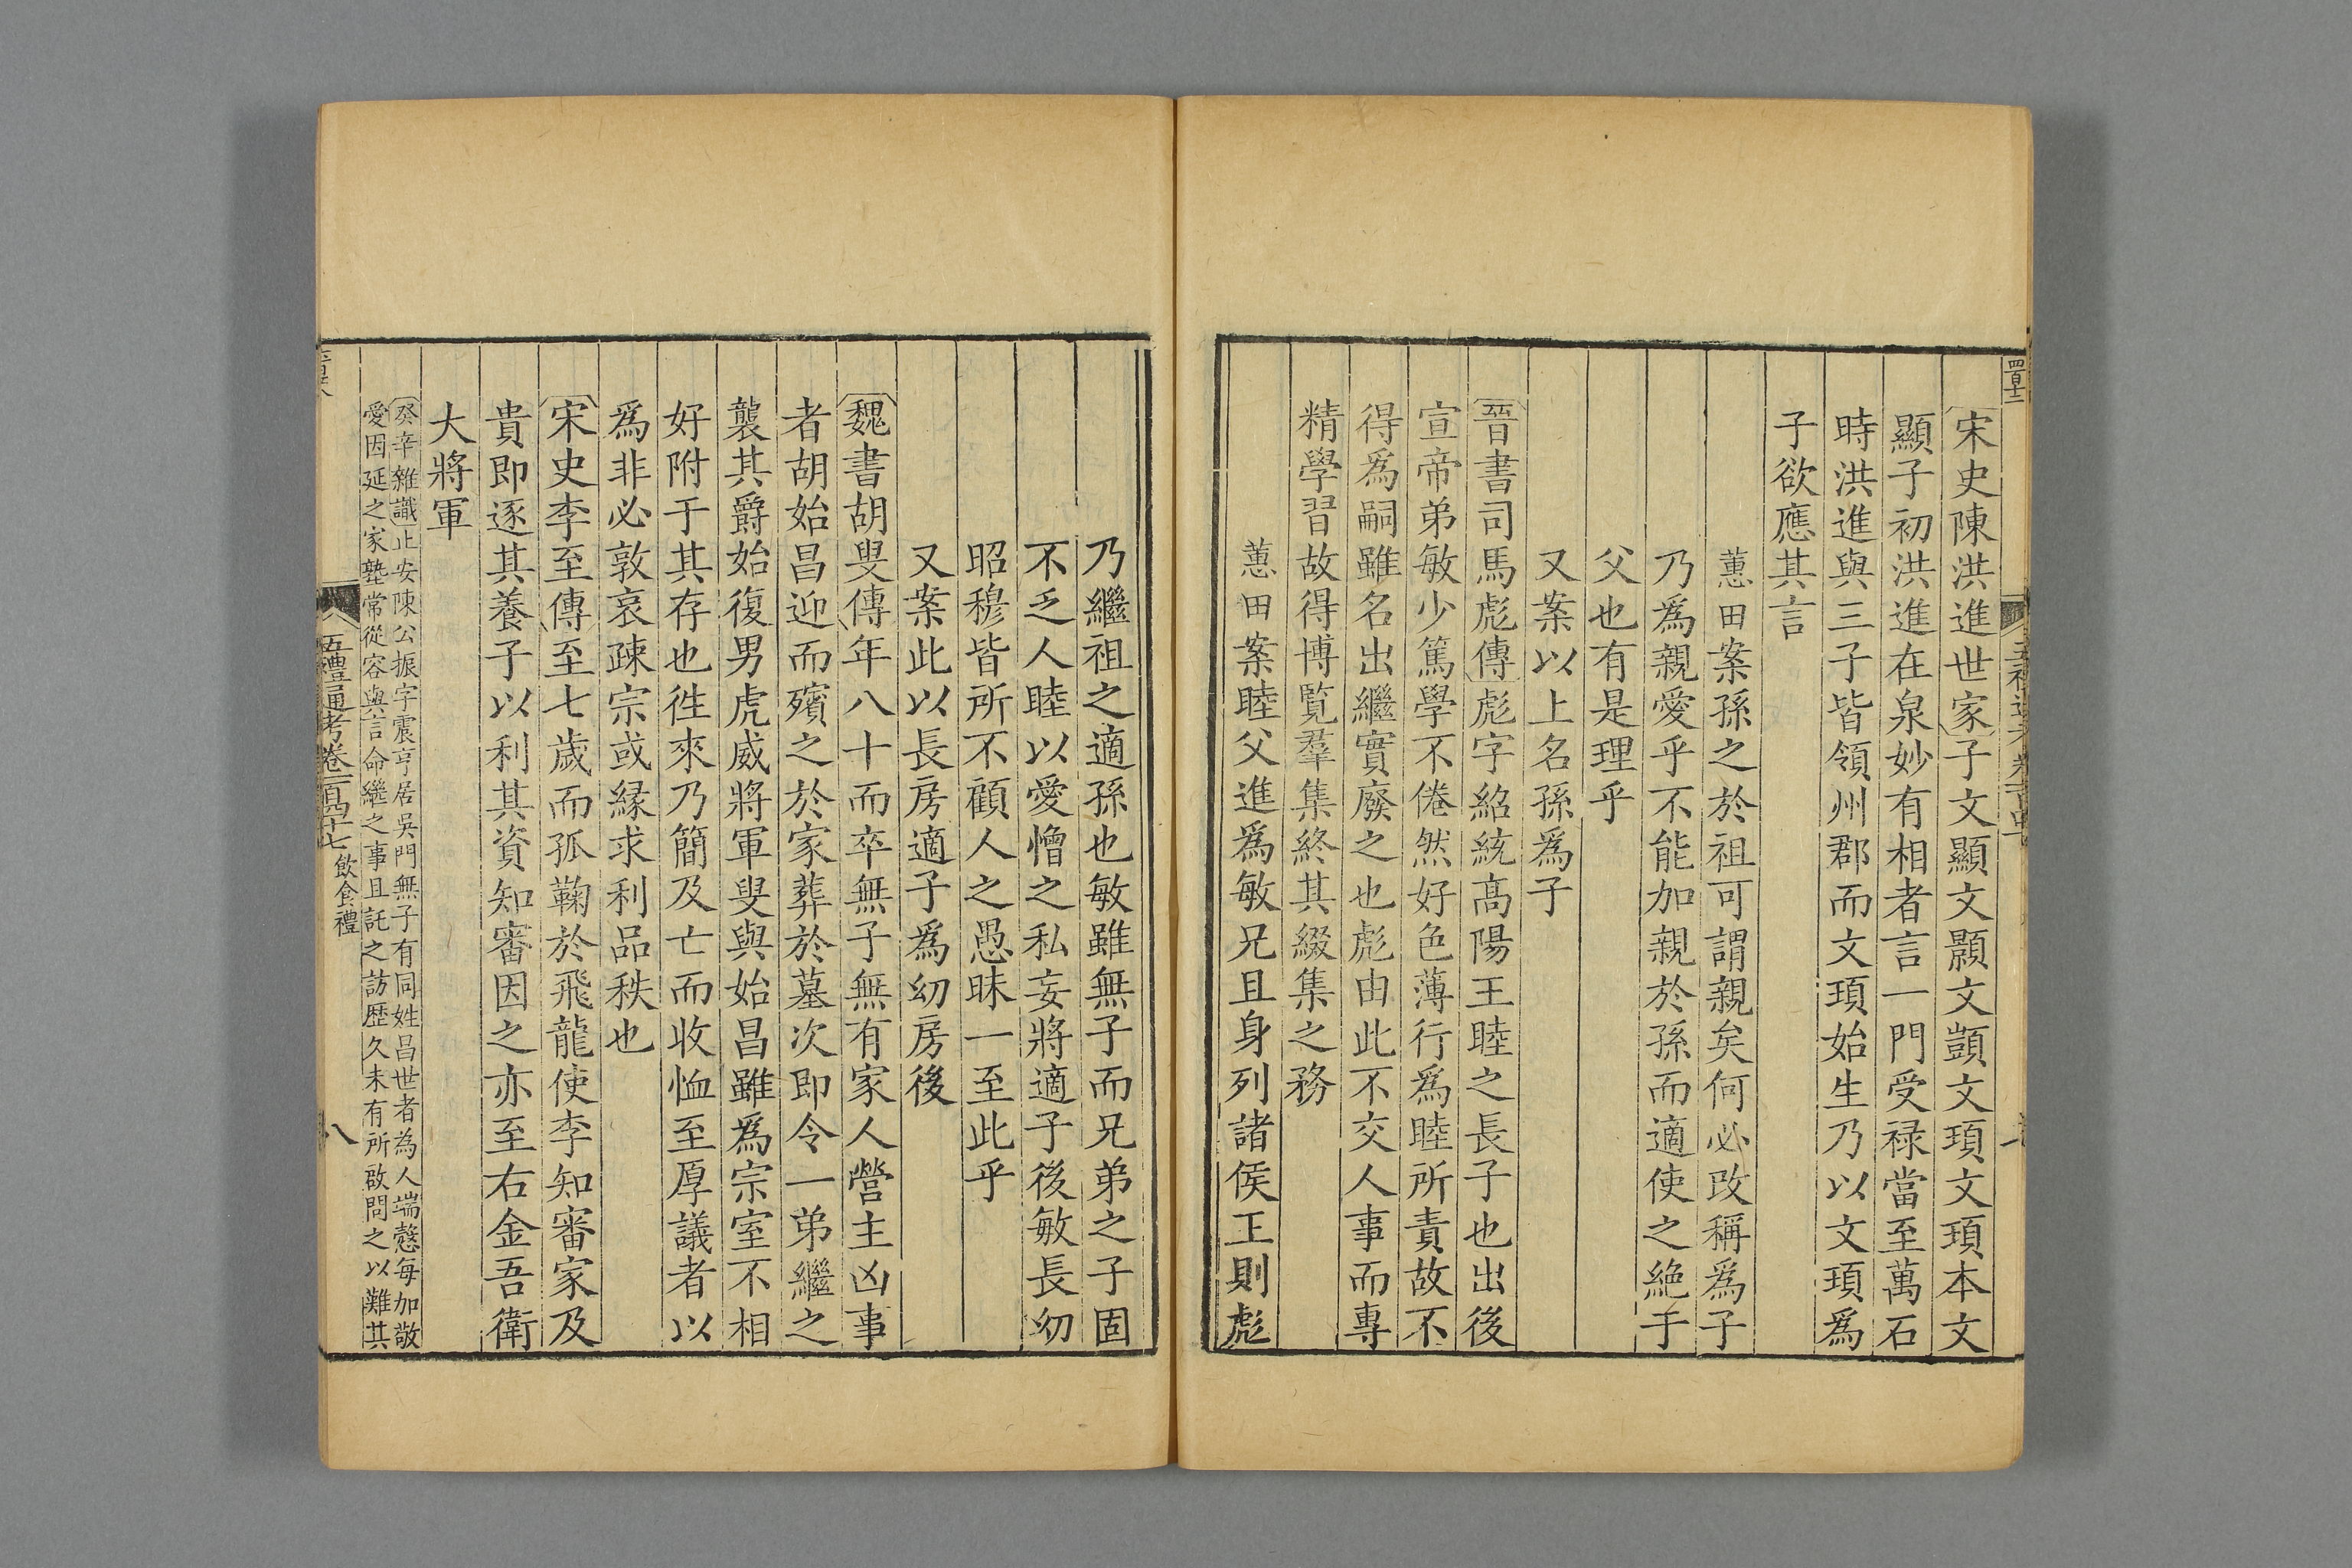 四百十二
宋史陳洪進世家子文顯文顥文顗文頊文頊本文
顯子初洪進在泉妙有相者言一門受祿當至萬石
時洪進與三子皆領州郡而文頊始生乃以文頊爲
子欲應其言
蕙田案孫之於祖可謂親矣何必改稱爲子
乃爲親愛乎不能加親於孫而適使之絶于
父也有是理乎
又案以上名孫爲子
晉書司馬彪傳彪字紹統高陽王睦之長子也出後
宣帝弟敏少篤學不倦然好色薄行爲睦所責故不
得爲嗣雖名出繼實廢之也彪由此不交人事而專
精學習故得博覽羣集終其綴集之務
蕙田案睦父進爲敏兄且身列諸侯王則彪
乃繼祖之適孫也敏雖無子而兄弟之子固
不乏人睦以愛憎之私妄將適子後敏長幼
昭穆皆所不顧人之愚昧一至此乎
又案此以長房適子爲幼房後
魏書胡叟傳年八十而卒無子無有家人營主凶事
者胡始昌迎而殯之於家葬於墓次即令一弟繼之
襲其爵始復男虎威將軍叟與始昌雖爲宗室不相
好附于其存也徃來乃簡及亡而收恤至厚議者以
爲非必敦哀疎宗或緣求利品秩也
宋史李至傳至七歲而孤鞠於飛龍使李知審家及
貴即逐其養子以利其資知審因之亦至右金吾衛
大將軍
癸辛雜識止安陳公振字震亨居吳門無子有同姓昌世者為人端慤每加敬
愛因延之家塾常從容與言命繼之事且託之訪歴久未有所啟問之以難其
五禮通考卷一百四十七 飲食禮
八